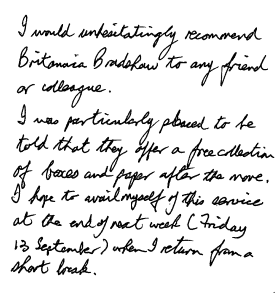 I would unhesitatingly recommend
Britannia Bradshaw to any friend
or colleague.
I was particularly pleased to be
told that they offer a free collection
of boxes and paper after the move.
I hope to avail myself of this service
at the end of next week (Friday
13 September) when I return from a
short break.